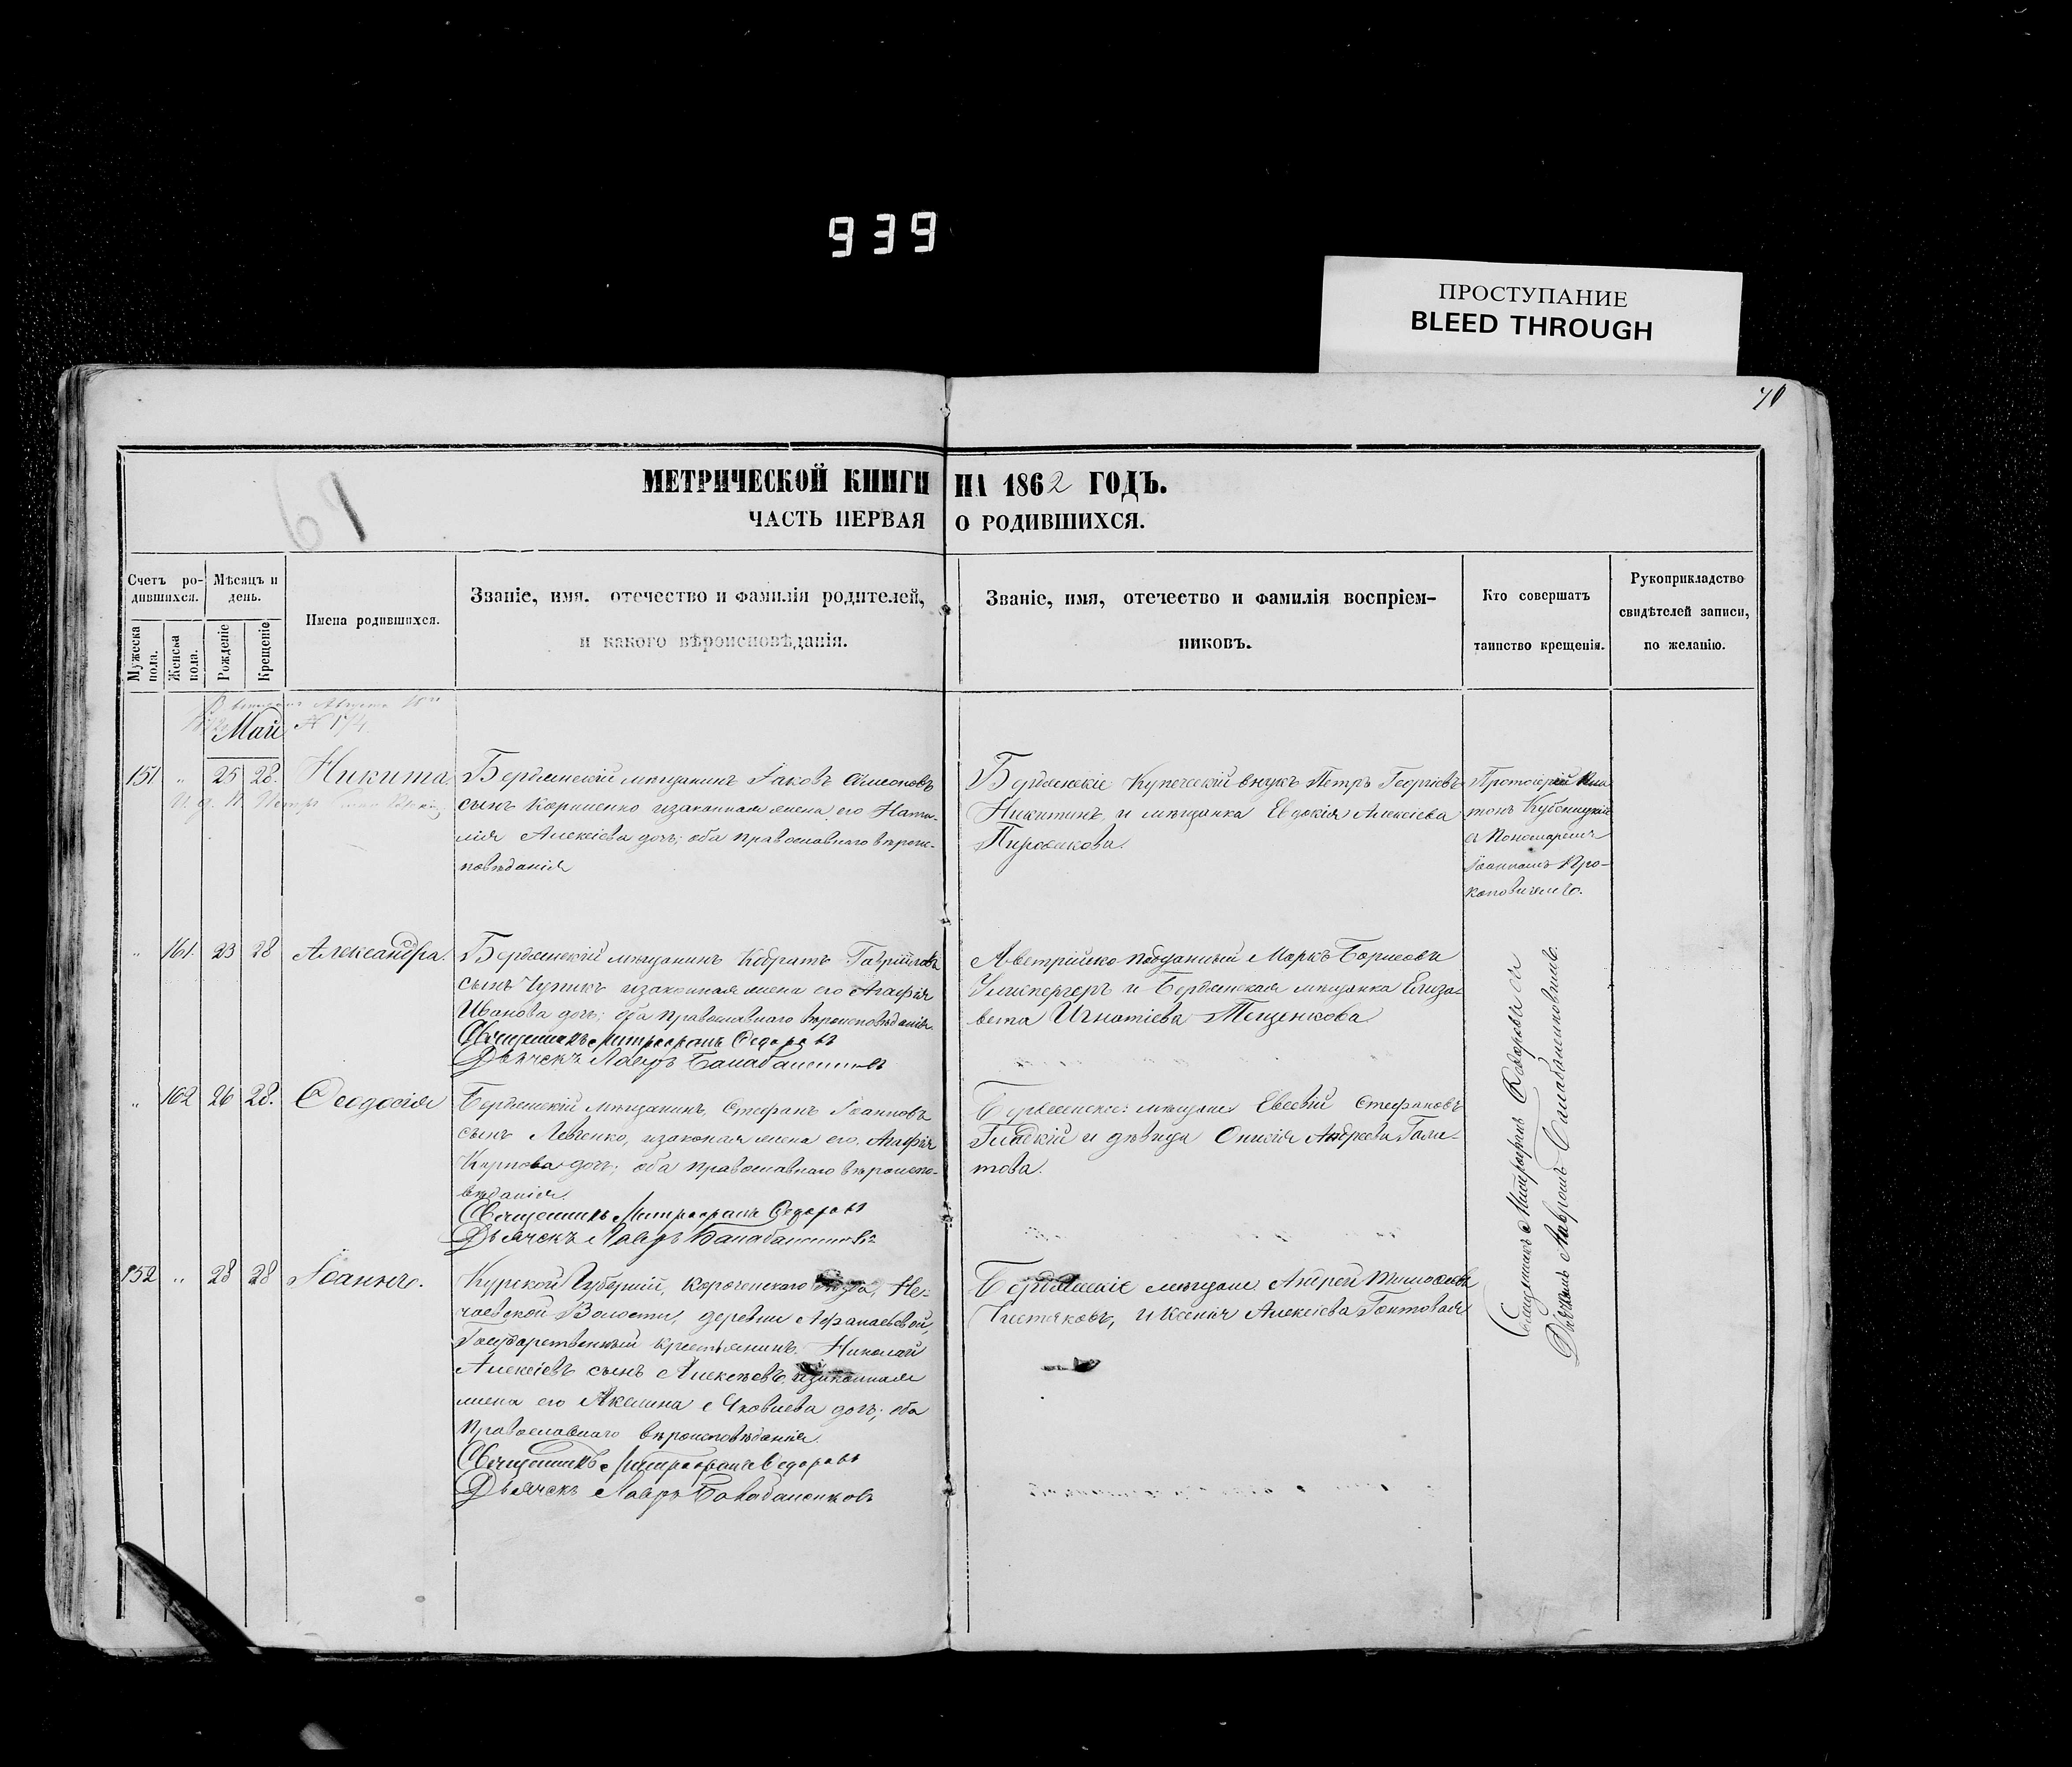 939
ПРОСТУПАНИЕ
BLEED THROUGH
70
61
МЕТРИЧЕСКОЙ КНИГИ НА 1862 ГОДЪ.
ЧАСТЬ ПЕРВАЯ О РОДИВШИХСЯ.
Счетъ ро-
дившихся.
Мужеска
пола.
Женска
пола.
Мѣсяцъ и
день.
Рожденіе
Крещеніе
Имена родившихся.
Званіе, имя. отечество и фамилія родителей,
и какого вѣроисповѣданія.
Званіе, имя, отечество и фамилія воспріем-
никовъ.
Кто совершатъ
таинство крещенія.
Рукоприкладство
свидѣтелей записи,
по желанію.
Май № 174
151 " 25 28. Никита.
Бердянскій мѣщанинъ Іаковъ Симеоновъ
сынъ Корниенко изаконная жена его Ната-
лія Алексіева дочь; оба православнаго вѣроис-
повѣданія
Бердянскіе Купеческій внукъ Петръ Георгіевъ
Никитинъ, и мѣщанка Евдокія Алексіева
Протоіерей
съ Пономаремъ
Іоанномъ Про-
коповичемъ.
" 161. 23 28 Александра.
Бердянскій мѣщанинъ Кодратъ Гавріиловъ
сынъ Чупикъ изаконная жена его Агафія
Иванова дочь; оба православнаго вѣроисповѣданія.
Священникъ Митрофанъ Федоровъ
Дьячекъ Лавръ Балабаненковъ
Австрійско подданный Маркъ Борисовъ
и Бердянская мѣщанка Елиза-
вета Игнатіева Тещенкова
" 162 26 28. Феодосія
Бердянскій мѣщанинъ, Стефанъ Іоанновъ
сынъ Левченко, изаконая жена его Агафія
Карпова дочь; оба православнаго вѣроиспо-
вѣданія.
Священникъ Митрофанъ Федоровъ
Дьячекъ Лавръ Балабаненковъ
Бердянскіе: мѣщане Евсевій Стефановъ
Гладкій и дѣвица Онисія Андреева Гала-
това.
152 " 28 28 Іоаннъ.
Курской Губерніи, Короченскаго уѣзда, Не-
чаевской Волости, деревни Афанасьевой,
Государственный крестьянинъ Николай
Алексіевъ сынъ Алексѣевъ изаконная
жена его Акилина Яковлева дочь; оба
православнаго вѣроисповѣданія.
Священникъ Митрофанъ Федоровъ
Дьячекъ Лавръ Балабаненковъ
Бердянскіе мѣщане Андрей Тимофеевъ
Чистяковъ, и Ксенія Алексіева Гонтовая
Священникъ Митрофанъ Федоровъ съ
Дьячкомъ Лавромъ Балабаненковымъ.